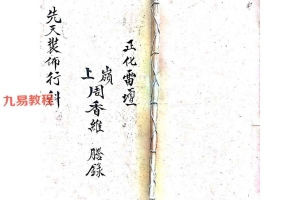 正化雷壇
嶺上周香維 謄錄
先天裝佈行科
九易教程